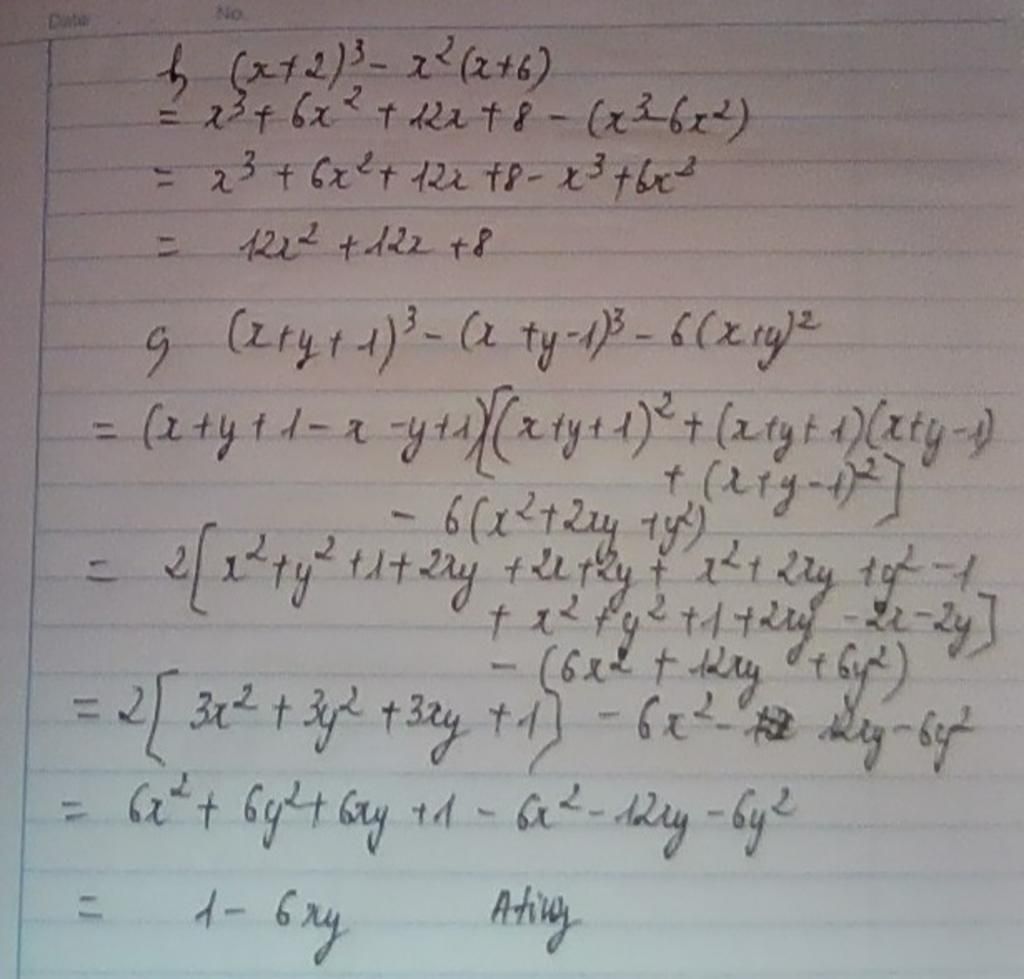 Date No.
b, (x+2)³ - x²(x+6)
= x³ + 6x² + 12x + 8 - (x³-6x²)
= x³ + 6x² + 12x + 8 - x³ + 6x²
= 12x² + 12x + 8
g (x+y+1)³ - (x+y-1)³ - 6(x+y)²
= (x+y+1-x-y+1)[(x+y+1)² + (x+y+1)(x+y-1)
+ (x+y-1)²]
- 6(x²+2xy+y²)
= 2[x²+y²+1+2xy+2x+2y+ x²+2xy+y²-1
+ x²+y²+1+2xy-2x-2y]
- (6x²+12xy+6y²)
= 2[3x²+3y²+3xy+1] - 6x² - 12xy - 6y²
= 6x²+6y²+6xy+1-6x²-12xy-6y²
= 1 - 6xy